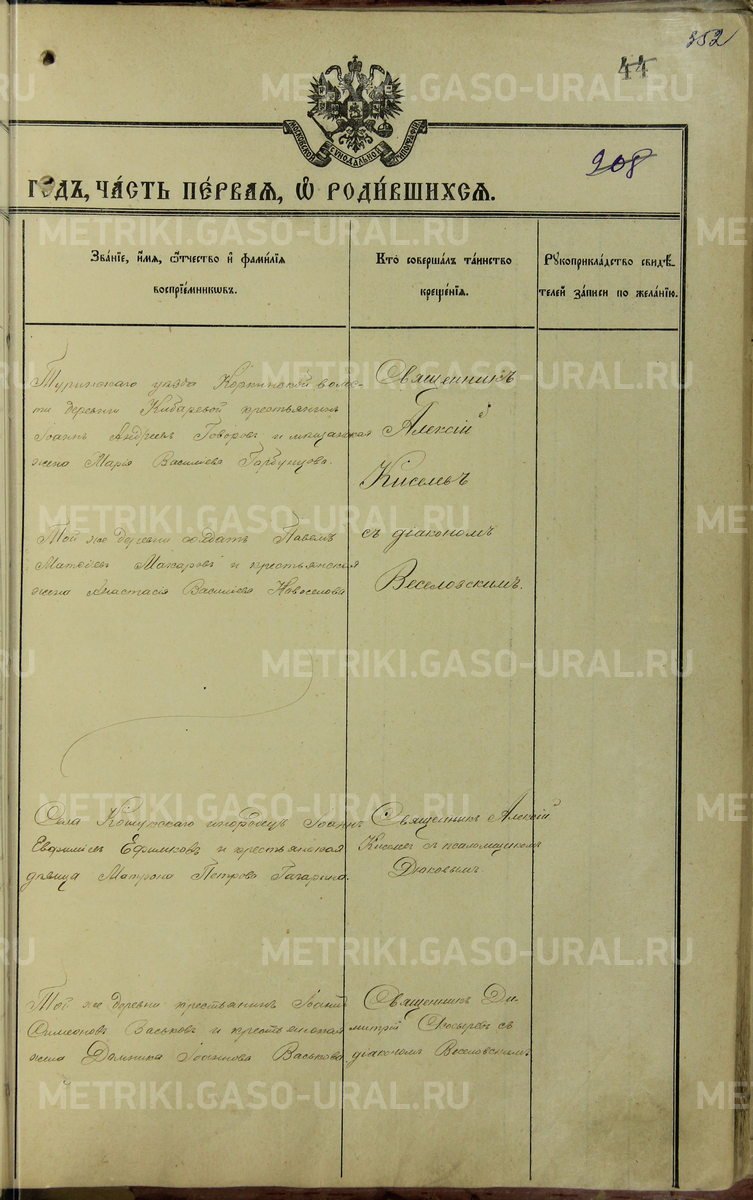 352
44
МОСКОВСКОЙ СѴНОДАЛЬНОЙ ТИПОГРАФІИ
208
ГОДЪ, ЧА́СТЬ ПЕ́РВАЯ, Ѿ РОДИ́ВШИХСЯ.
Зва́ніе, и́мя, о́тчество и́ фами́лія
воспріе́мниковъ.
Кто̀ соверша́лъ та́инство
креще́нія.
Рукоприкла́дство свидѣ́-
телей за́писи по жела́нію.
Туринскаго уѣзда Коркинской волос-
ти деревни Кибаревой крестьянинъ
Іоаннъ Андреевъ Говоровъ и мѣщанская
жена Марія Василіева Горбунцова.
Священникъ
Алексій
Киселевъ
съ діакономъ
Веселовскимъ.
Той же деревни солдатъ Павелъ
Матвѣевъ Макаровъ и крестьянская
жена Анастасія Василіева Новоселова
Села Кошукскаго инородецъ Іоаннъ
Евфиміевъ Ефимковъ и крестьянская
дѣвица Матрона Петрова Гагарина.
Священникъ Алексій
Киселевъ съ псаломщикомъ
Дюковымъ.
Той же деревни крестьянинъ Іоаннъ
Симеоновъ Васьковъ и крестьянская
жена Домника Іоаннова Васькова.
Священникъ Ди-
митрій съ
діакономъ Веселовскимъ
METRIKI.GASO-URAL.RU